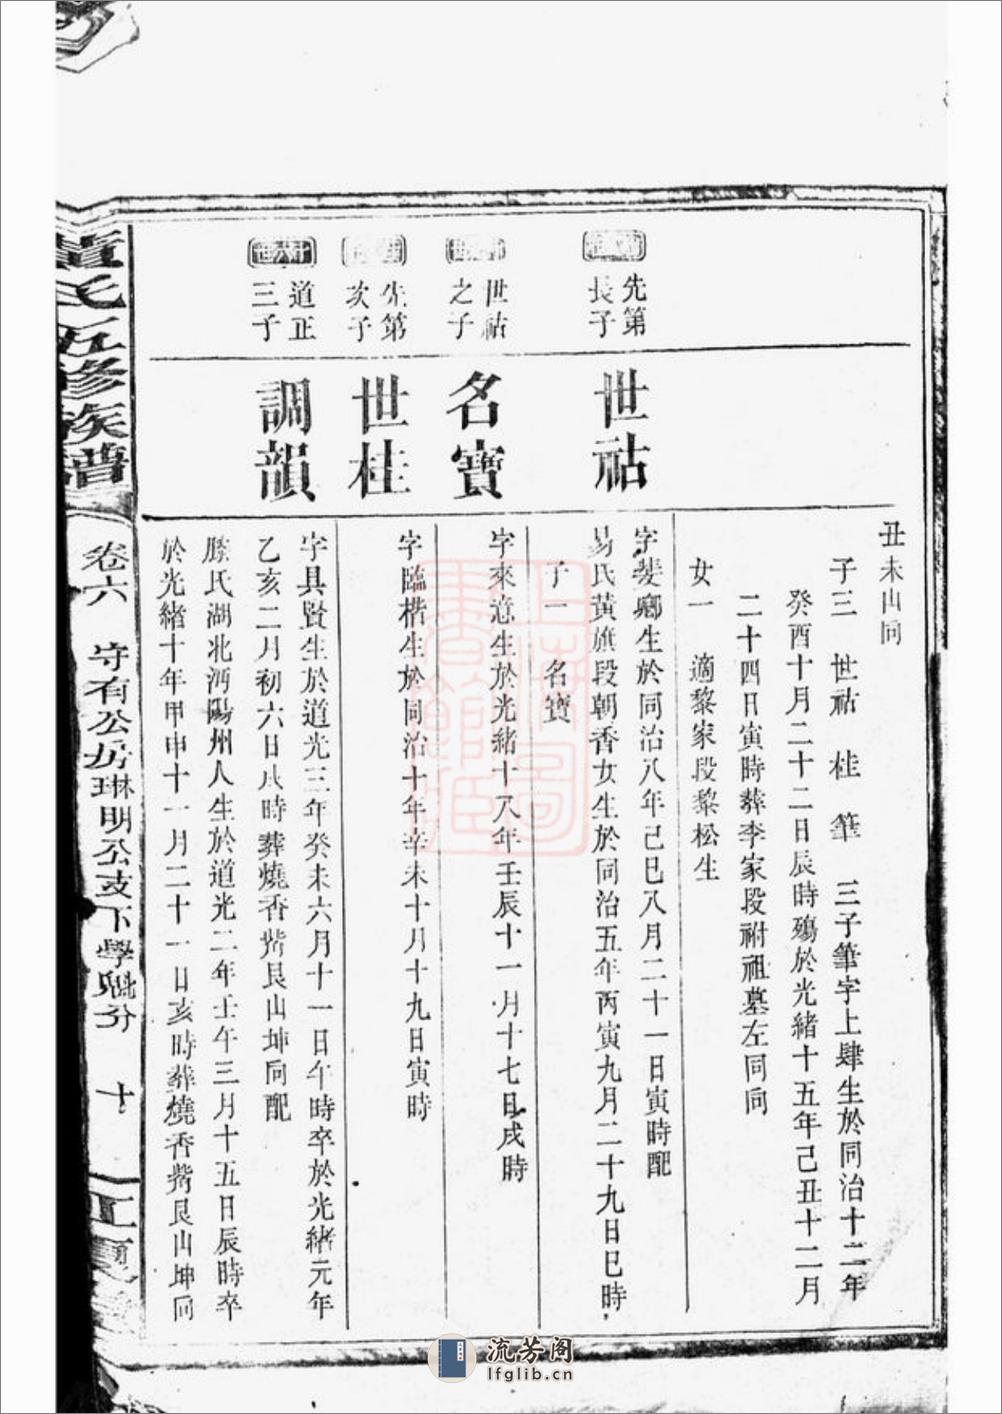 丑未山同
子三　世祜　桂　筆　三子筆字上肆生於同治十二年
癸酉十月二十二日辰時殤於光緒十五年己丑十二月
二十四日寅時葬李家段祔祖墓左同同
女一　適黎家段黎松生
先第
長子
世祜
字斐卿生於同治八年己巳八月二十一日寅時配
易氏黃旗段朝香女生於同治五年丙寅九月二十九日巳時
子一　名寶
世祜
之子
名寶
字來意生於光緒十八年壬辰十一月十七日戌時
先第
次子
世桂
字臨楷生於同治十年辛未十月十九日寅時
十六世
道正
三子
調韻
字具賢生於道光三年癸未六月十一日午時卒於光緒元年
乙亥二月初六日戌時葬燒香嵴艮山坤同配
滕氏湖北沔陽州人生於道光二年壬午三月十五日辰時卒
於光緒十年甲申十一月二十一日亥時葬燒香嵴艮山坤同
董氏五修族譜
卷六　守有公房琳明公支下學魁分　十
江夏
上海圖
書館藏
流芳阁
lfglib.cn